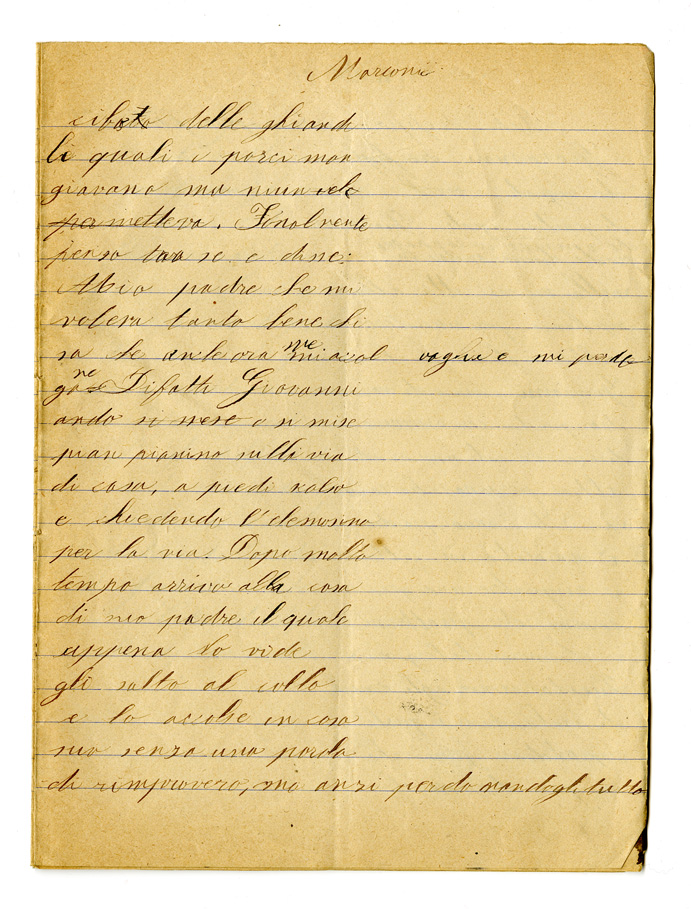 Marconi
cibato delle ghiande
li quali i porci man
giavano ma niun
permetteva. Finalmente
penso tra se e disse:
Mio padre che mi
voleva tanto bene chi
sa se anchora me mi accol voglia e mi perdo
ga ne Difatti Giovanni
ando si mese e si mise
pian pianino sulli via
di casa, a piedi
e chiedendo l'elemosina
per la via. Dopo molto
tempo arrivo alla casa
di suo padre il quale
appena lo vide
gli salto al collo
e lo accolse in casa
sua senza una parola
di rimprovero, ma anzi perdonandogli tutto